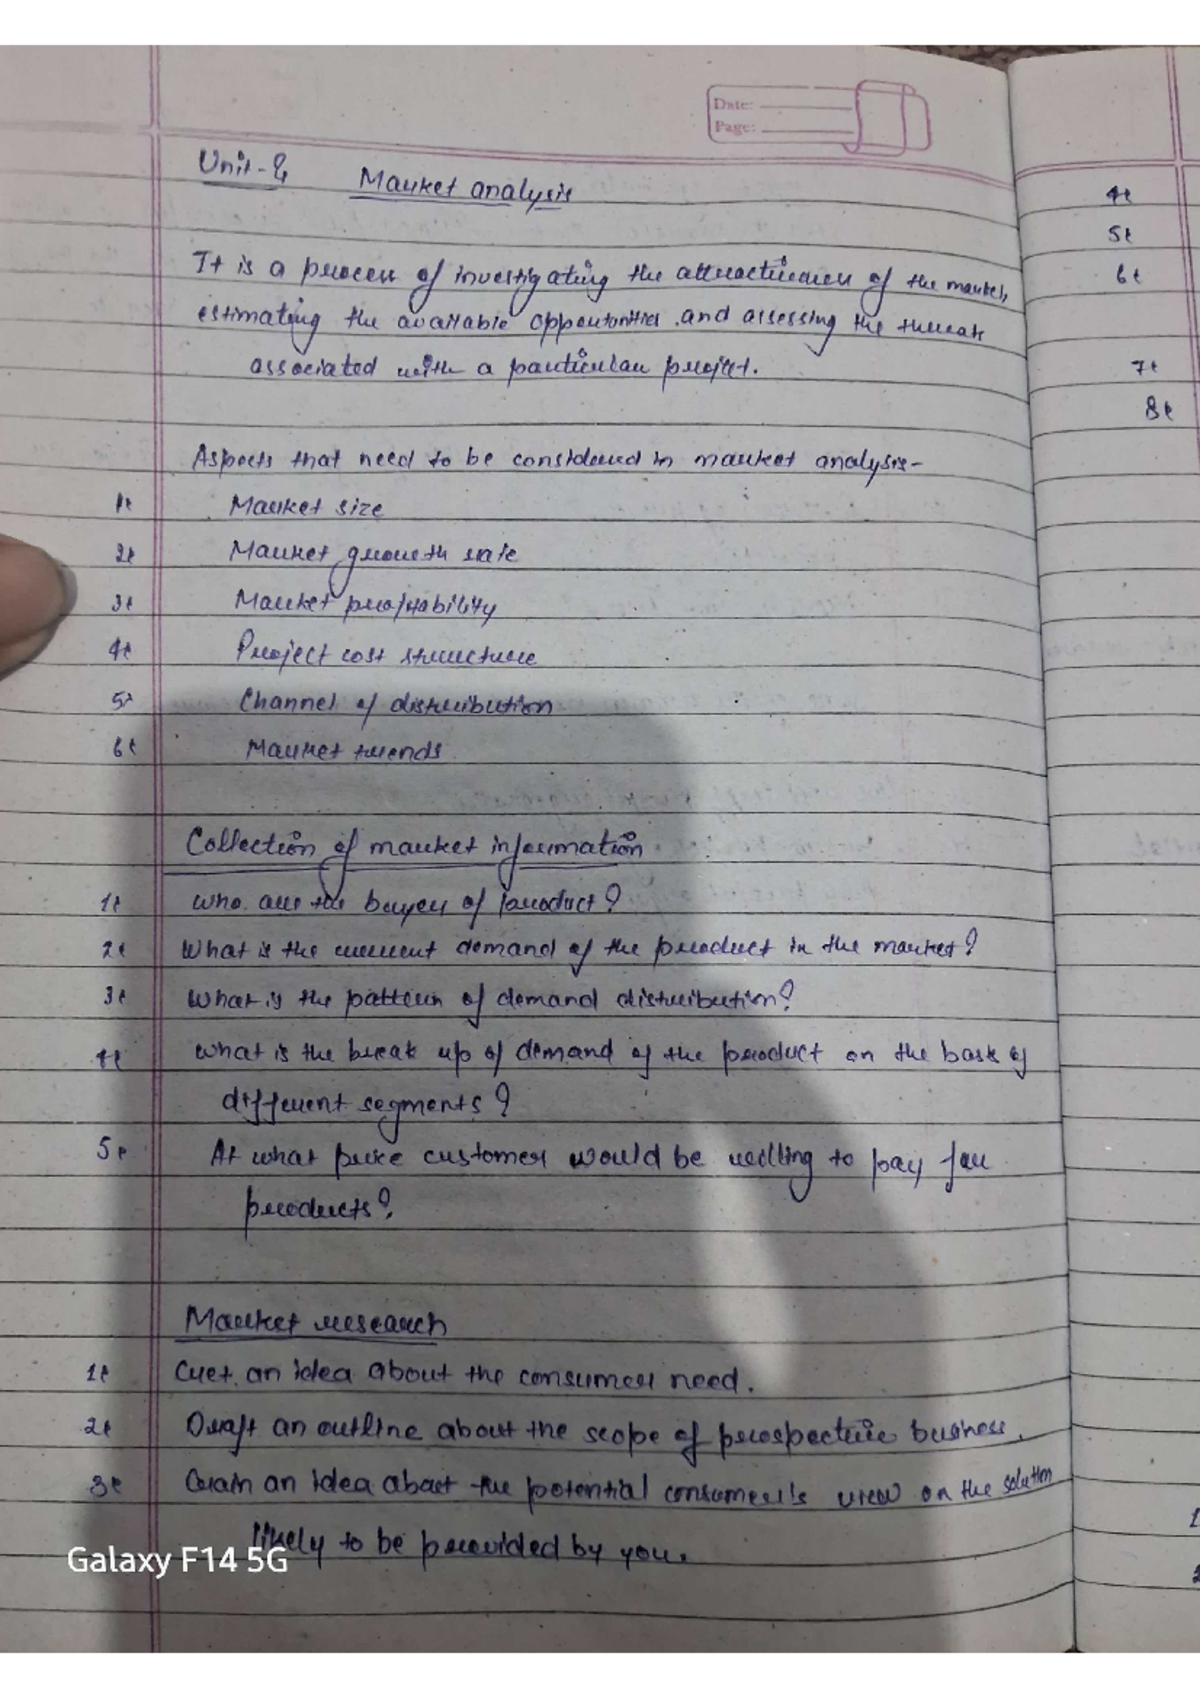 Date:
Page:
Unit-2 Market analysis
It is a process of investigating the attractiveness of the market,
estimating the available oppoutonities and assessing the threats
associated with a particular project.
Aspects that need to be considered in market analysis-
1. Market size
2. Market growth rate
3. Market profitability
4. Project cost structure
5. Channel of distribution
6. Market trends
Collection of market information
1. Who are the buyers of product?
2. What is the current demand of the product in the market?
3. What is the pattern of demand distribution?
4. What is the break up of demand of the product on the basis of
different segments?
5. At what price customer would be willing to pay for
products?
Market research
1. Get an idea about the consumer need.
2. Draft an outline about the scope of prospective business.
3. Gain an idea about the potential consumer's view on the solution
likely to be provided by you.
Galaxy F14 5G
4.
5.
6.
7.
8.